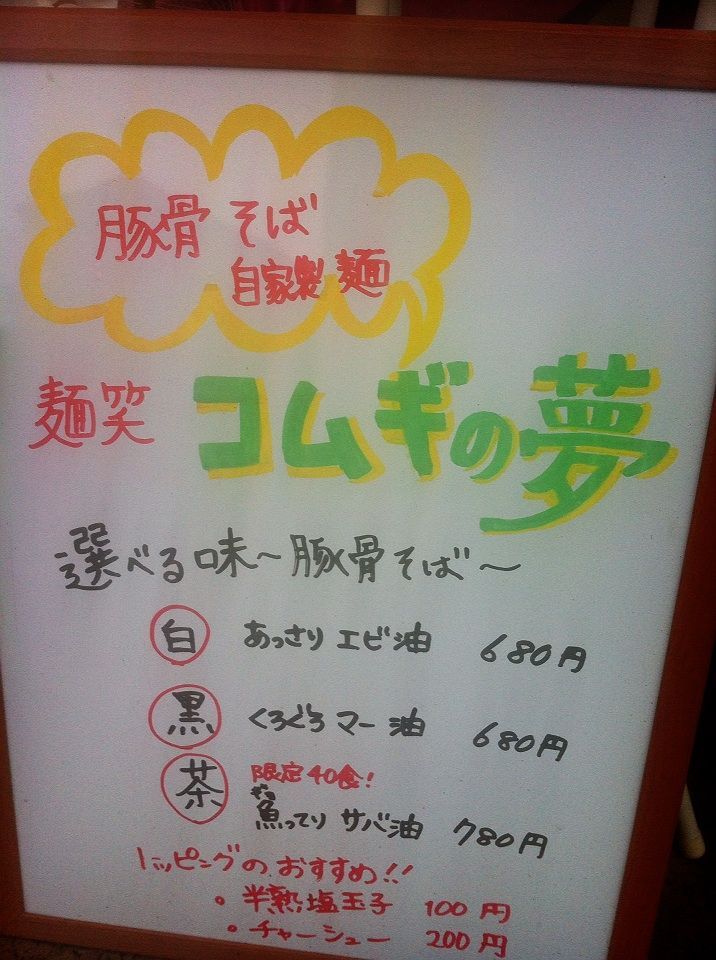 豚骨 そば
自家製 麺
麺笑 コムギの夢
選べる味～豚骨そば～
白 あっさり エビ油 680円
黒 くろぐろ マー油 680円
茶 限定40食!
ギョ
魚ってり サバ油 780円
トッピングの おすすめ!!
・半熟塩玉子 100円
・チャーシュー 200円